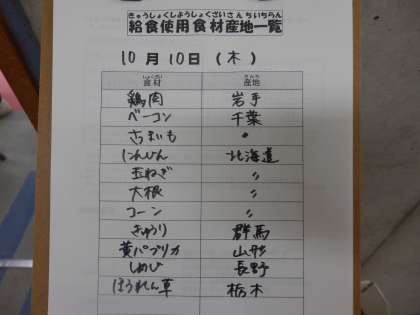 きゅうしょくしようしょくざいさんちいちらん
給食使用食材産地一覧
10月10日(木)
しょくざい さんち
食材 産地
鶏肉 岩手
ベーコン 千葉
さつまいも 〃
にんじん 北海道
玉ねぎ 〃
大根 〃
コーン 〃
きゅうり 群馬
黄パプリカ 山形
しめじ 長野
ほうれん草 栃木